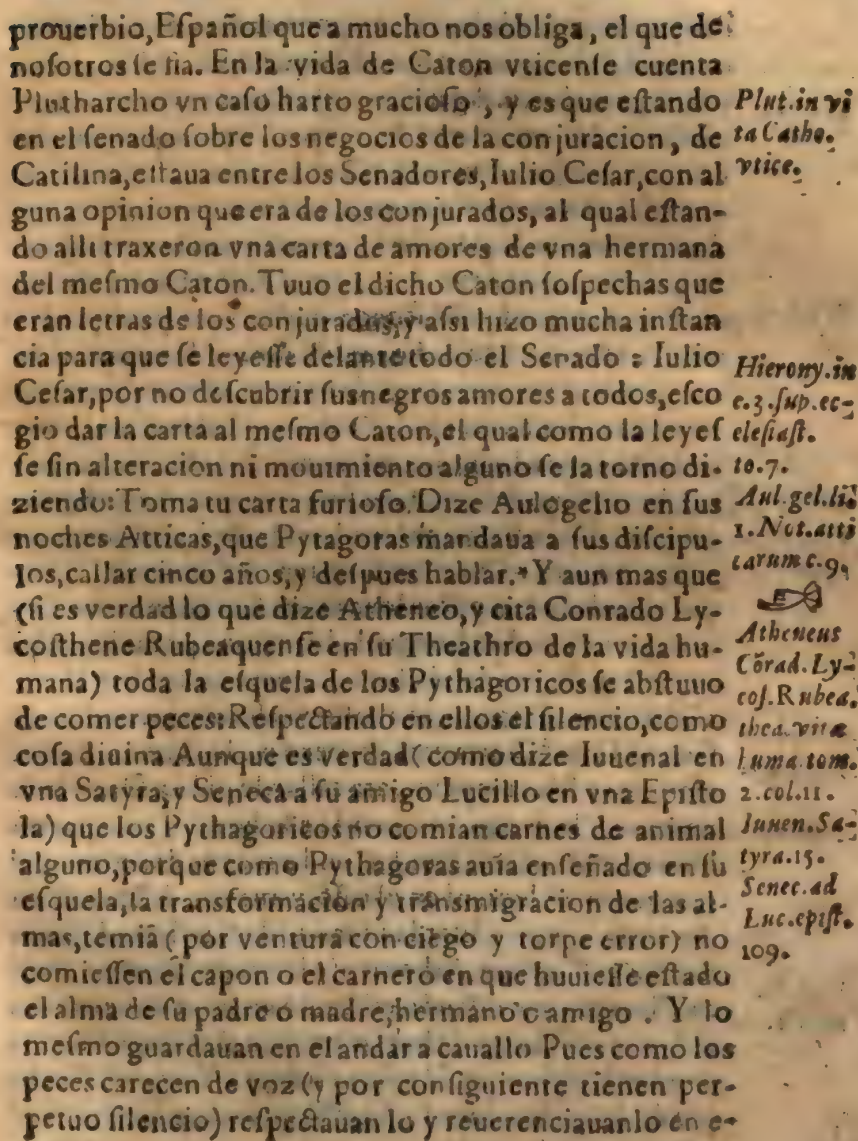 prouerbio,Eſpañol que a mucho nos obliga, el que de
noſotros ſe fia. En la vida de Caton vticenſe cuenta
Plutharcho vn caſo harto gracioſo, y es que eſtando
en el ſenado ſobre los negocios de la conjuracion, de
Catilina,eſtaua entre los Senadores,Iulio Ceſar,con al
guna opinion que era de los conjurados, al qual eſtan-
do alli traxeron vna carta de amores de vna hermana
del meſmo Caton.Tuuo el dicho Caton ſoſpechas que
eran letras de los conjurados,y aſsi hizo mucha inſtan
cia para que ſe leyeſſe delante todo el Senado : Iulio
Ceſar,por no deſcubrir ſus negros amores a todos,eſco
gio dar la carta al meſmo Caton,el qual como la leyeſ
ſe ſin alteracion ni mouimiento alguno ſe la torno di-
ziendo:Toma tu carta furioſo.Dize Aulogelio en ſus
noches Atticas,que Pytagoras mandaua a ſus diſcipu-
los,callar cinco años,y deſpues hablar.* Y aun mas que
(ſi es verdad lo que dize Atheneo,y cita Conrado Ly-
coſthene Rubeaquenſe en ſu Theathro de la vida hu-
mana) toda la eſquela de los Pythagoricos ſe abſtuuo
de comer peces:Reſpectando en ellos el ſilencio,como
coſa diuina Aunque es verdad(como dize Iuuenal en
vna Satyra,y Seneca a ſu amigo Lucillo en vna Epiſto
la) que los Pythagoricos no comian carnes de animal
alguno,porque como Pythagoras auia enſeñado en ſu
eſquela,la transformacion y tranſmigracion de las al-
mas,temiã (por ventura con ciego y torpe error) no
comieſſen el capon o el carnero en que huuieſſe eſtado
el alma de ſu padre o madre,hermano o amigo . Y lo
meſmo guardauan en el andar a cauallo Pues como los
peces carecen de voz (y por conſiguiente tienen per-
petuo ſilencio) reſpectauan lo y reuerenciauanlo en e-
Plut.in vi
ta Catho.
vtice.
Hierony.in
c.3.ſup.ec-
cleſiaſt.
to.7.
Aul.gel.li.
1.Not.atti
carum c.9.
Atheneus
Cõrad.Ly-
coſ.Rubea.
thea.vitæ
huma.tom.
2.col.11.
Iuuen.Sa-
tyra.15.
Senec.ad
Luc.epiſt.
109.